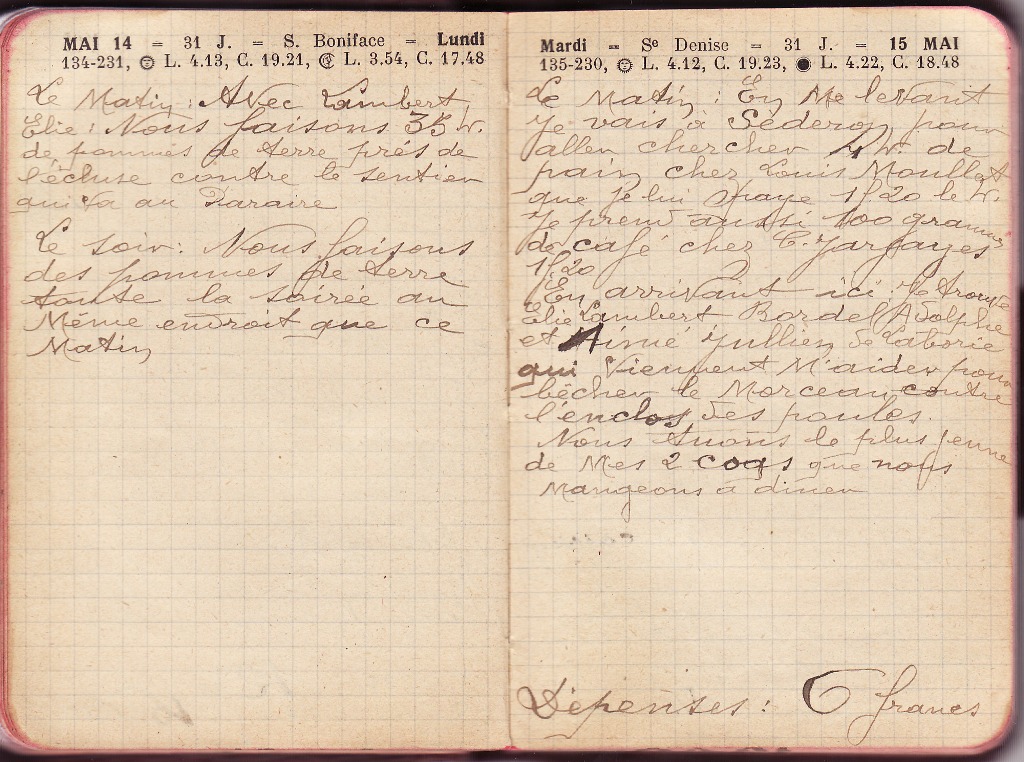 MAI 14 = 31 J. = S. Boniface = Lundi
134-231, L. 4.13, C. 19.21, L. 3.54, C. 17.48
Le Matin : Avec Lambert
Elie : Nous faisons 35 K.
de pommes de terre prés de
l'écluse contre le sentier
qui va au Paraire
Le soir : Nous faisons
des pommes de terre
toute la soirée au
Même endroit que ce
Matin
Mardi = Se Denise = 31 J. = 15 MAI
135-230, L. 4.12, C. 19.23, L. 4.22, C. 18.48
Le Matin : En Me levant
Je vais à Séderon pour
aller chercher 4 K. de
pain chez Louis Moullet
que je lui paye 1f20 le K.
Je prend aussi 100 grammes
de café chez C. Jargayes
1f20
En arrivant ici Je trouve
Elie Lambert Bordel Adolphe
et Aimé Jullien de Laborie
qui Viennent M'aider pour
bêcher le Morceau contre
l'enclos des poules.
Nous tuons le plus jeune
de Mes 2 coqs que nous
Mangeons à diner
Dépenses : 6 francs